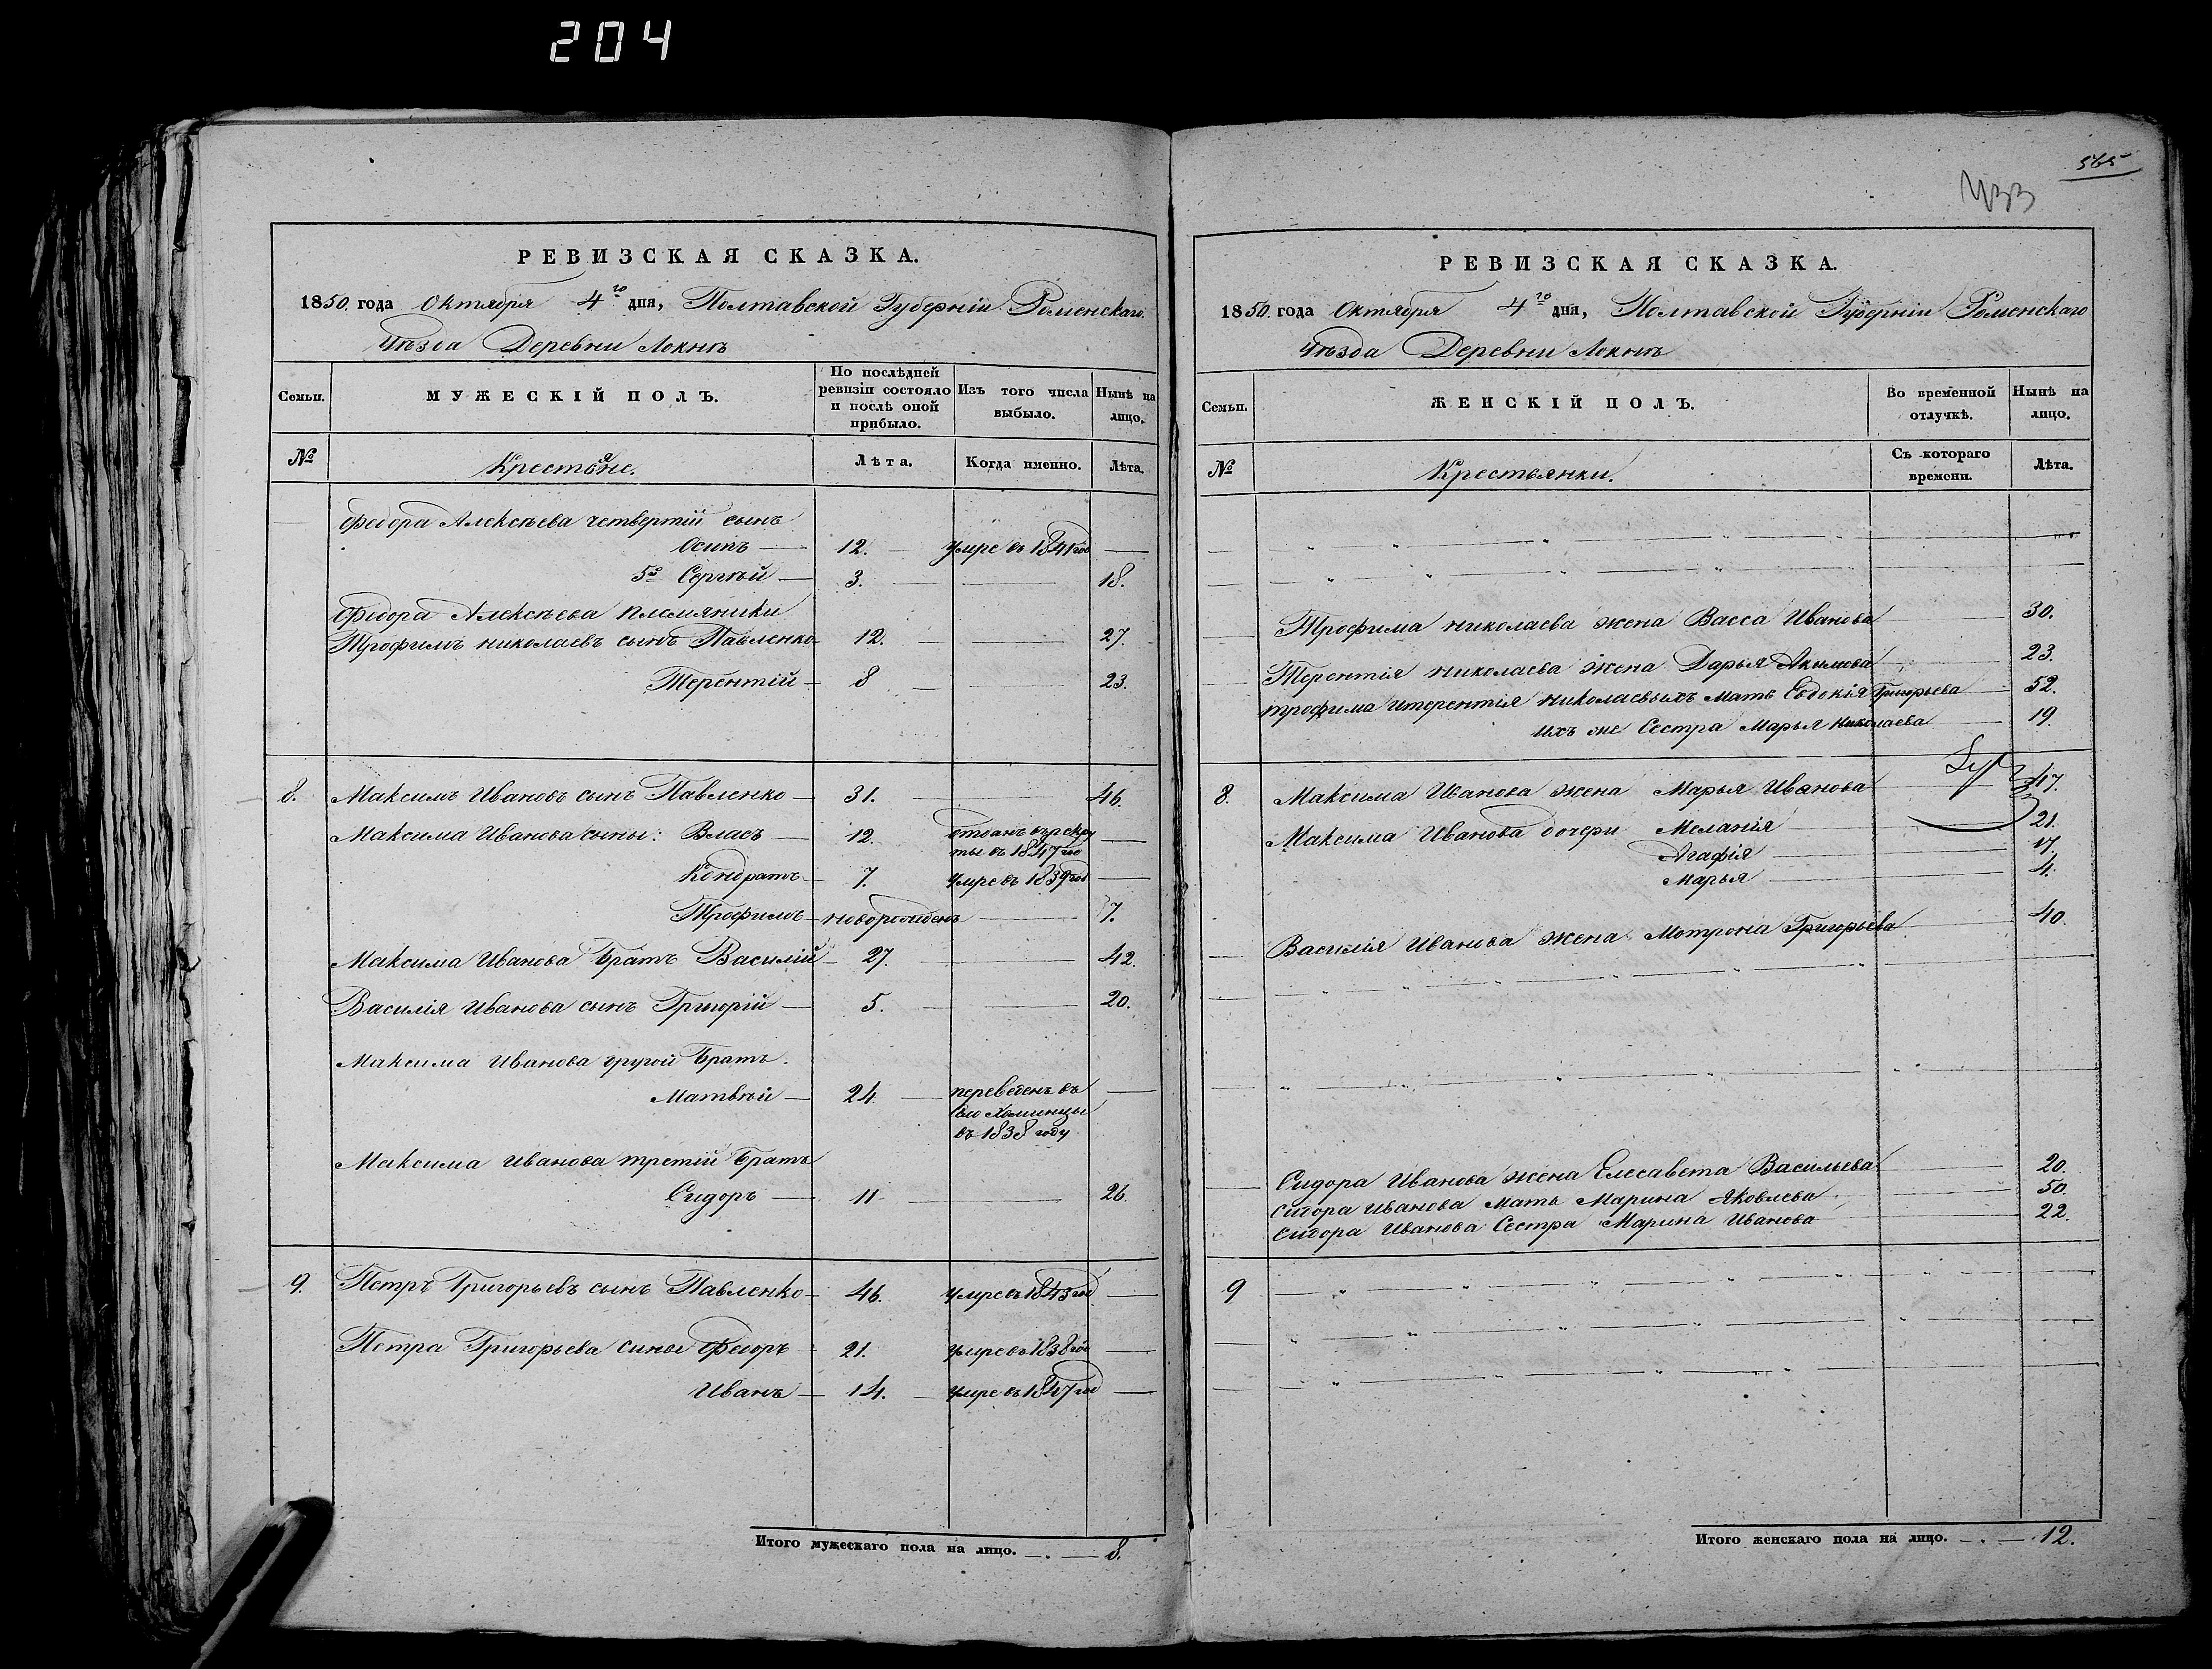 204
РЕВИЗСКАЯ СКАЗКА.
1850. года Октября 4го дня, Полтавской Губерніи Роменскаго
Уѣзда Деревни Локнѣ
Семьи.
МУЖЕСКІЙ ПОЛЪ.
По послѣдней ревизіи состояло и послѣ оной прибыло.
Изъ того числа выбыло.
Нынѣ на лицо.
№
Крестьяне.
Лѣта.
Когда именно.
Лѣта.
Федора Алексѣева четвертій сынъ
Осипъ — 12. — умре въ 1841 год —
5й Сергѣй — 3. — 18.
Федора Алексѣева племяники
Трофимъ николаевъ сынъ Павленко — 12. — 27.
Терентій — 8 — 23.
8. Максимъ Ивановъ сынъ Павленко — 31. — 46.
Максима Иванова сыны: Власъ — 12. отданъ въ рекру
ты въ 1847 год —
Кондратъ — 7. умре въ 1839 год —
Трофимъ — новорожденъ — 7.
Максима Иванова Братъ Василій — 27. — 42.
Василія Иванова сынъ Григорій — 5. — 20.
Максима Иванова другой Братъ
Матвѣй — 24 — переведенъ въ —
село Хоминцы
въ 1838 году
Максима Иванова третій Братъ
Сидоръ — 11 — 26.
9. Петръ Григорьевъ сынъ Павленко — 46. умре въ 1843 год —
Петра Григорьева сины Федоръ — 21. умре въ 1838 год —
Иванъ — 14. — умре въ 1847 год —
Итого мужескаго пола на лицо. — 8.
565
433
РЕВИЗСКАЯ СКАЗКА.
1850. года Октября 4го дня, Полтавской Губерніи Роменскаго
Уѣзда Деревни Локнѣ
Семьи.
ЖЕНСКІЙ ПОЛЪ.
Во временной отлучкѣ.
Нынѣ на лицо.
№
Крестьянки.
Съ котораго времени.
Лѣта.
Трофима николаева жена Васса Иванова — 30.
Терентія николаева жена Дарья Акимова — 23.
трофима итерентія николаевыхъ мать Евдокія Григорьева — 52.
ихъ же Сестра Марья николаева — 19.
8. Максима Иванова жена Марья Иванова — 47.
Максима Иванова дочери Меланія — 21.
Агафія — 17.
Марья — 4.
Василія Иванова жена Мотрона Григорьева — 40.
Сидора Иванова жена Елесавета Васильева — 20.
сидора иванова мать Марина Яковлева — 50.
сидора Иванова Сестра Марина Иванова — 22.
9
Итого женскаго пола на лицо. — 12.